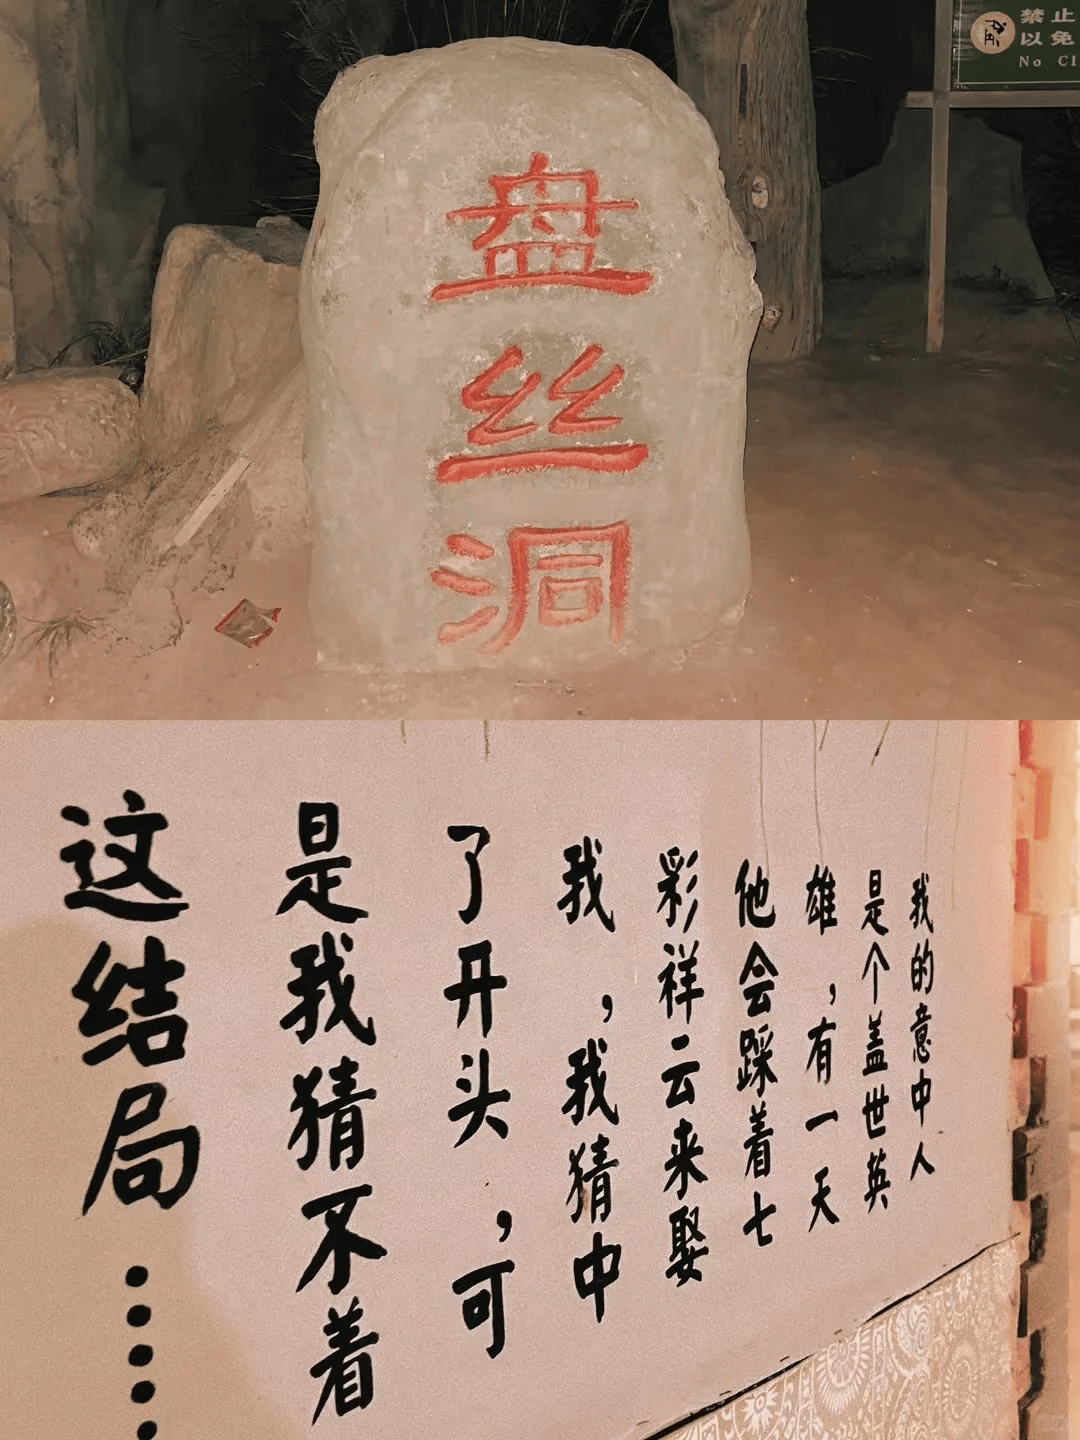 盘丝洞
禁止
以免
No Cl
我的意中人
是个盖世英
雄，有一天
他会踩着七
彩祥云来娶
我，我猜中
了开头，可
是我猜不着
这结局……